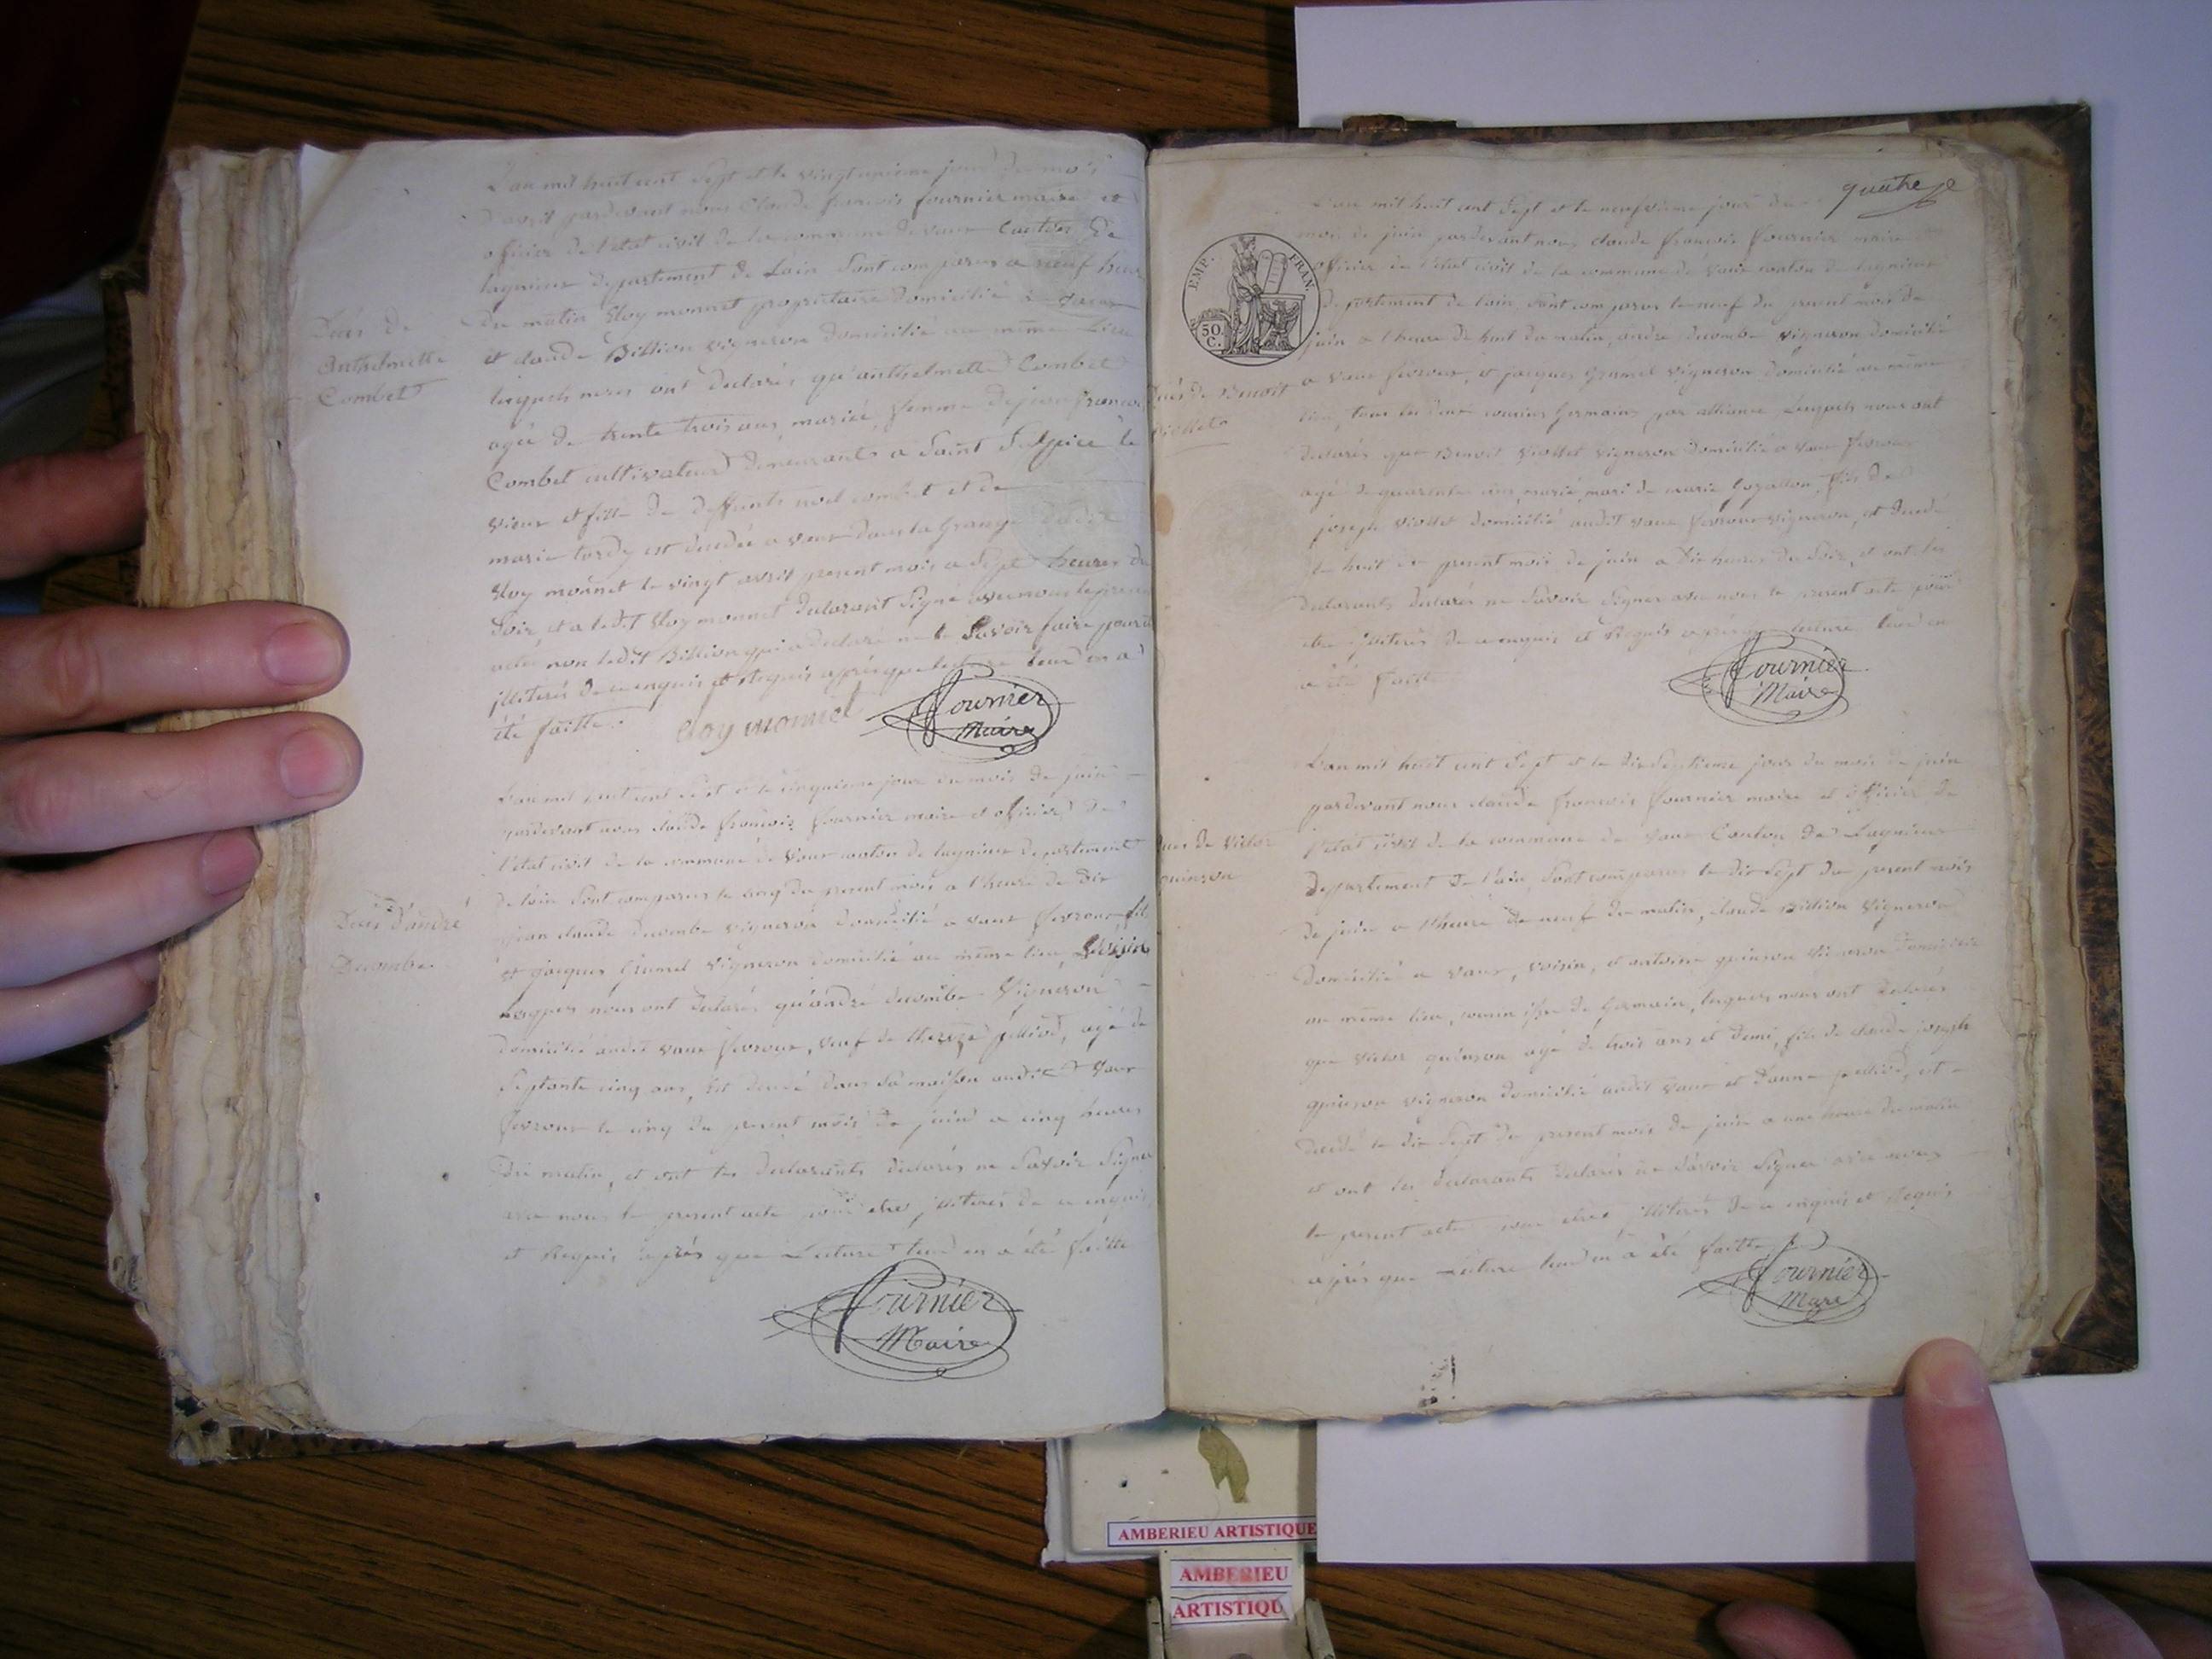 L'an mil huit cent sept et le vingt unieme jour du mois
d'avril pardevant nous Claude françois fournier maire et
officier de l'état civil de la commune de vaux Canton de
lagnieux departement de L'ain Sont comparus a neuf heures
du matin Eloy monnet propriétaire domicilié à vaux
et claude Billion vigneron domicilié au même Lieu
lesquels nous ont declarés qu'anthelmette Combet
agée de trente trois ans, mariée, femme de jean françois
Combet cultivateur demeurants a Saint Sulpice le
vieux et fille de deffunts noel combet et de
marie tardy est decedée a vaux dans la Grange dudit
Eloy monnet le vingt avril present mois a Sept heures du
Soir, et a ledit Eloy monnet declarant Signé avec nous le present
acte, non ledit Billion qui a declaré ne le Savoir faire pour être
illiterés de ce enquis et Requis après que lecture leur en a
été faitte.
Decès de
Anthelmette
Combet
eloy monnet
Fournier
Maire
L'an mil huit cent sept et le cinquieme jour du mois de juin
pardevant nous claude françois fournier maire et officier de
l'etat civil de la commune de vaux canton de lagnieux departement
de l'ain Sont comparus le cinq du present mois a l'heure de dix
jean claude decombe vigneron domicilié a vaux fevroux, fils
et jacques Gramel vigneron domicilié au même lieu, Voisin
lesquels nous ont declarés qu'andré decombe vigneron
domicilié audit vaux fevroux, veuf de therèze pelliod, agé de
Septante cinq ans, est decedé dans Sa maison audit vaux
fevroux le cinq du present mois de juin a cinq heures
du matin, et ont les declarants declarés ne Savoir Signer
avec nous le present acte pour etre illiterés de ce enquis
et Requis après que Lecture leur en a été faitte
Decès d'andré
Decombe
Fournier
Maire
quatre
EMP. FRAN.
50.
C.
L'an mil huit cent Sept et le neufvieme jour du
mois de juin pardevant nous claude françois fournier maire
officier de l'état civil de la commune de vaux canton de lagnieux
departement de l'ain, Sont comparus le neuf du present mois de
juin a l'heure de huit du matin, andré decombe vigneron domicilié
a vaux fevroux, et jacques Gramel vigneron domicilié au même
lieu, tous les deux cousins Germains par alliance Lesquels nous ont
declarés que Benoit Viollet vigneron domicilié a vaux fevroux
agé de quarante ans, marié, mari de marie Gozallon, fils de
joseph Viollet domicilié audit vaux fevroux vigneron, est decedé
le huit du present mois de juin a Dix heures du Soir, et ont les
declarants declarés ne Savoir Signer avec nous le present acte pour
etre illiterés de ce enquis et Requis après que lecture leur en
a été faitte
Decès de Benoit
Viollet
Fournier
Maire
L'an mil huit cent Sept et le dix Septieme jour du mois de juin
pardevant nous claude françois fournier maire et officier de
l'état civil de la commune de vaux Canton de Lagnieux
departement de l'ain, Sont comparus le dix Sept du present mois
de juin a l'heure de neuf du matin, claude Billion vigneron
domicilié a vaux, voisin, et antoine quinson vigneron domicilié
au même lieu, cousin issu de Germain, lesquels nous ont declarés
que victor quinson agé de trois ans et demi, fils de claude joseph
quinson vigneron domicilié audit vaux et d'anne pelliod, est
decedé le dix Sept du present mois de juin a une heure du matin
et ont les declarants declarés ne Savoir Signer avec nous
le present acte pour etres illiterés de ce enquis et Requis
après que lecture leur en a été faitte
Decès de Victor
quinson
Fournier
Maire
AMBERIEU ARTISTIQUE
AMBERIEU
ARTISTIQU